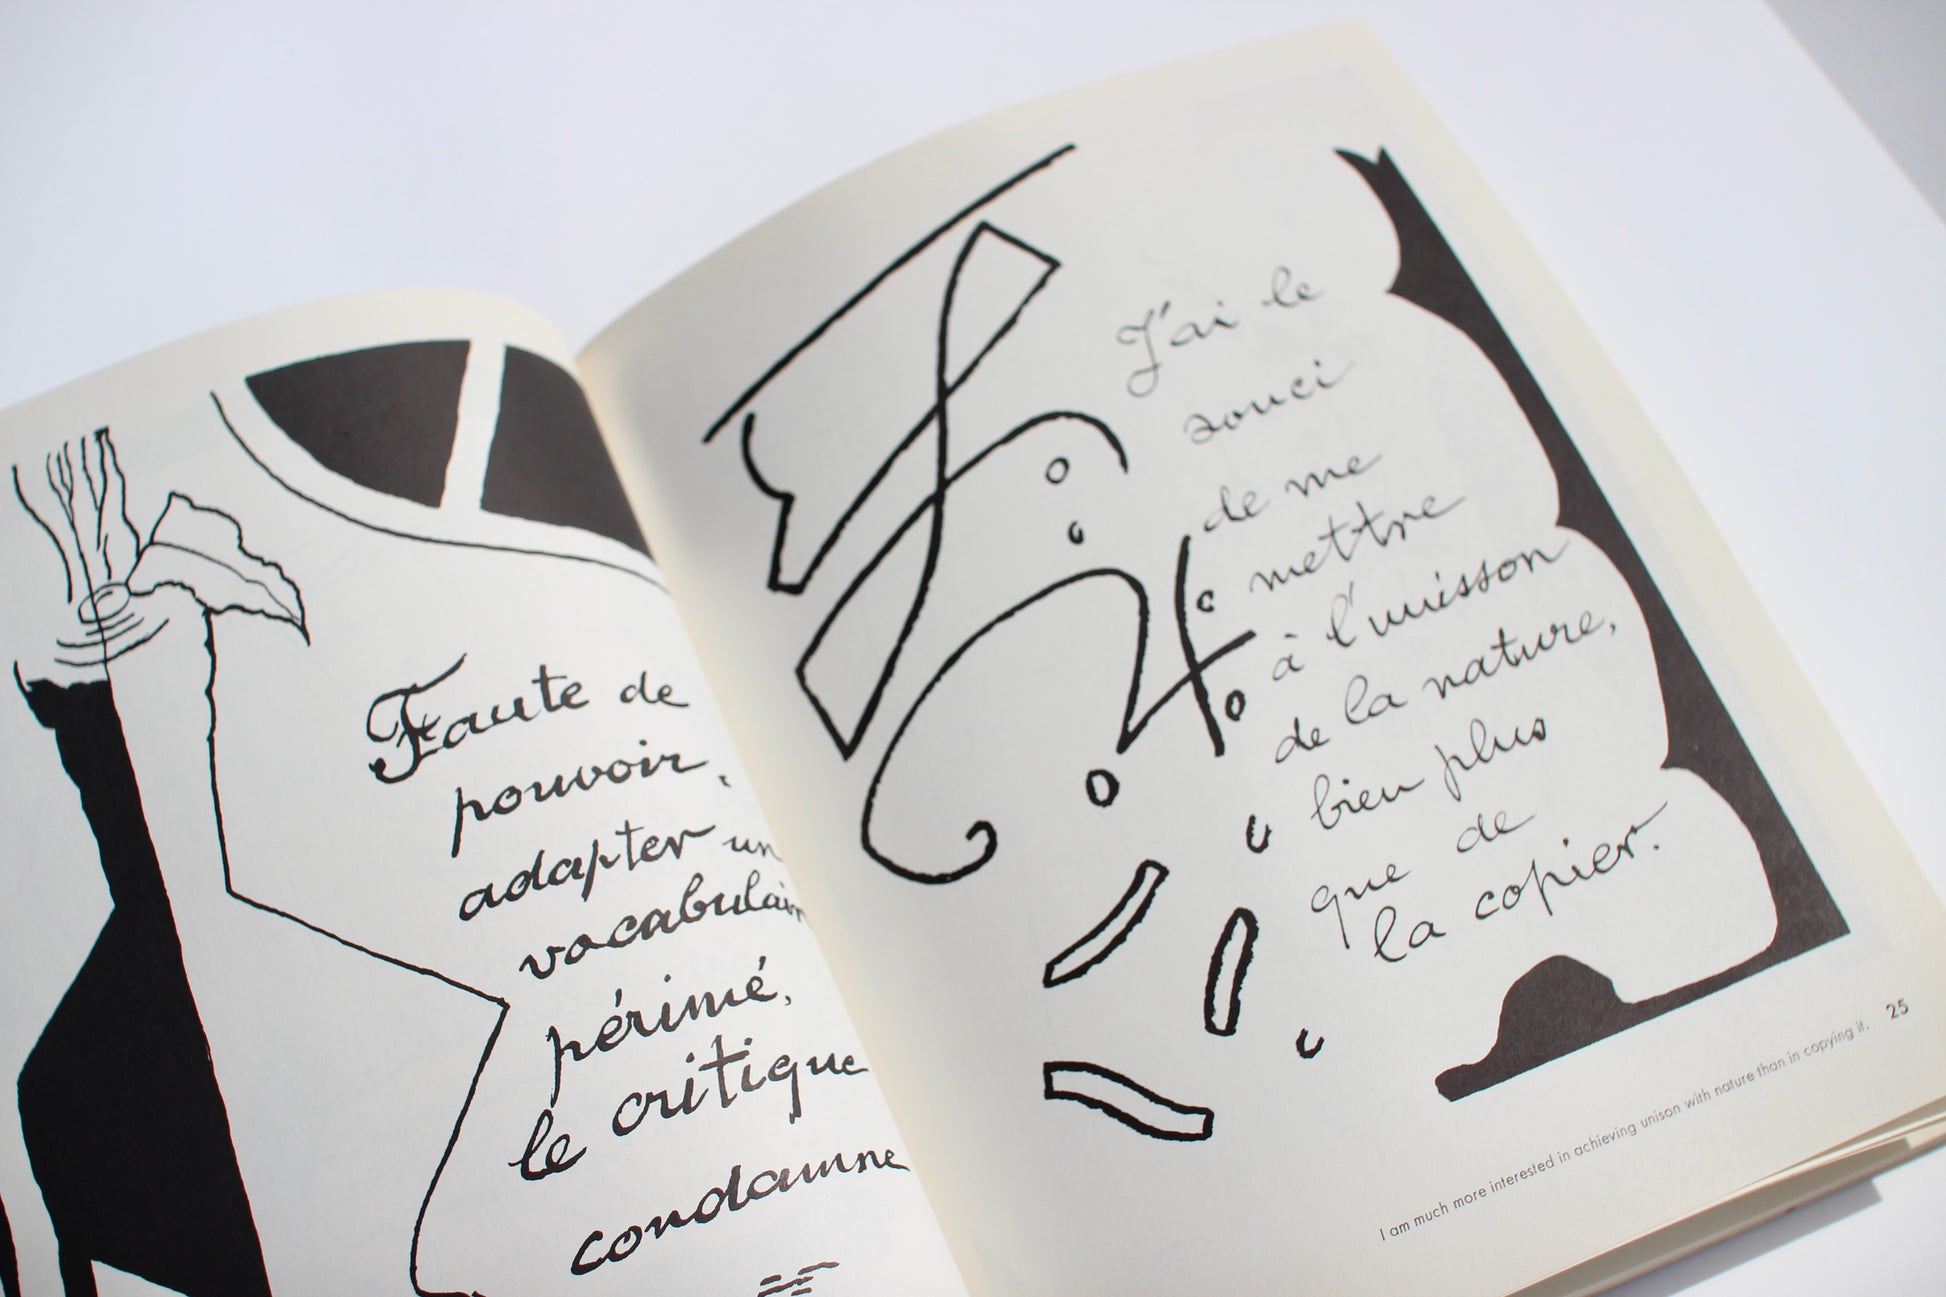 Faute de
pouvoir,
adapter un
vocabulair
périmé,
le critique
condamne
J'ai le
souci
de me
mettre
à l'unisson
de la nature,
bien plus
que de
la copier.
I am much more interested in achieving unison with nature than in copying it. 25